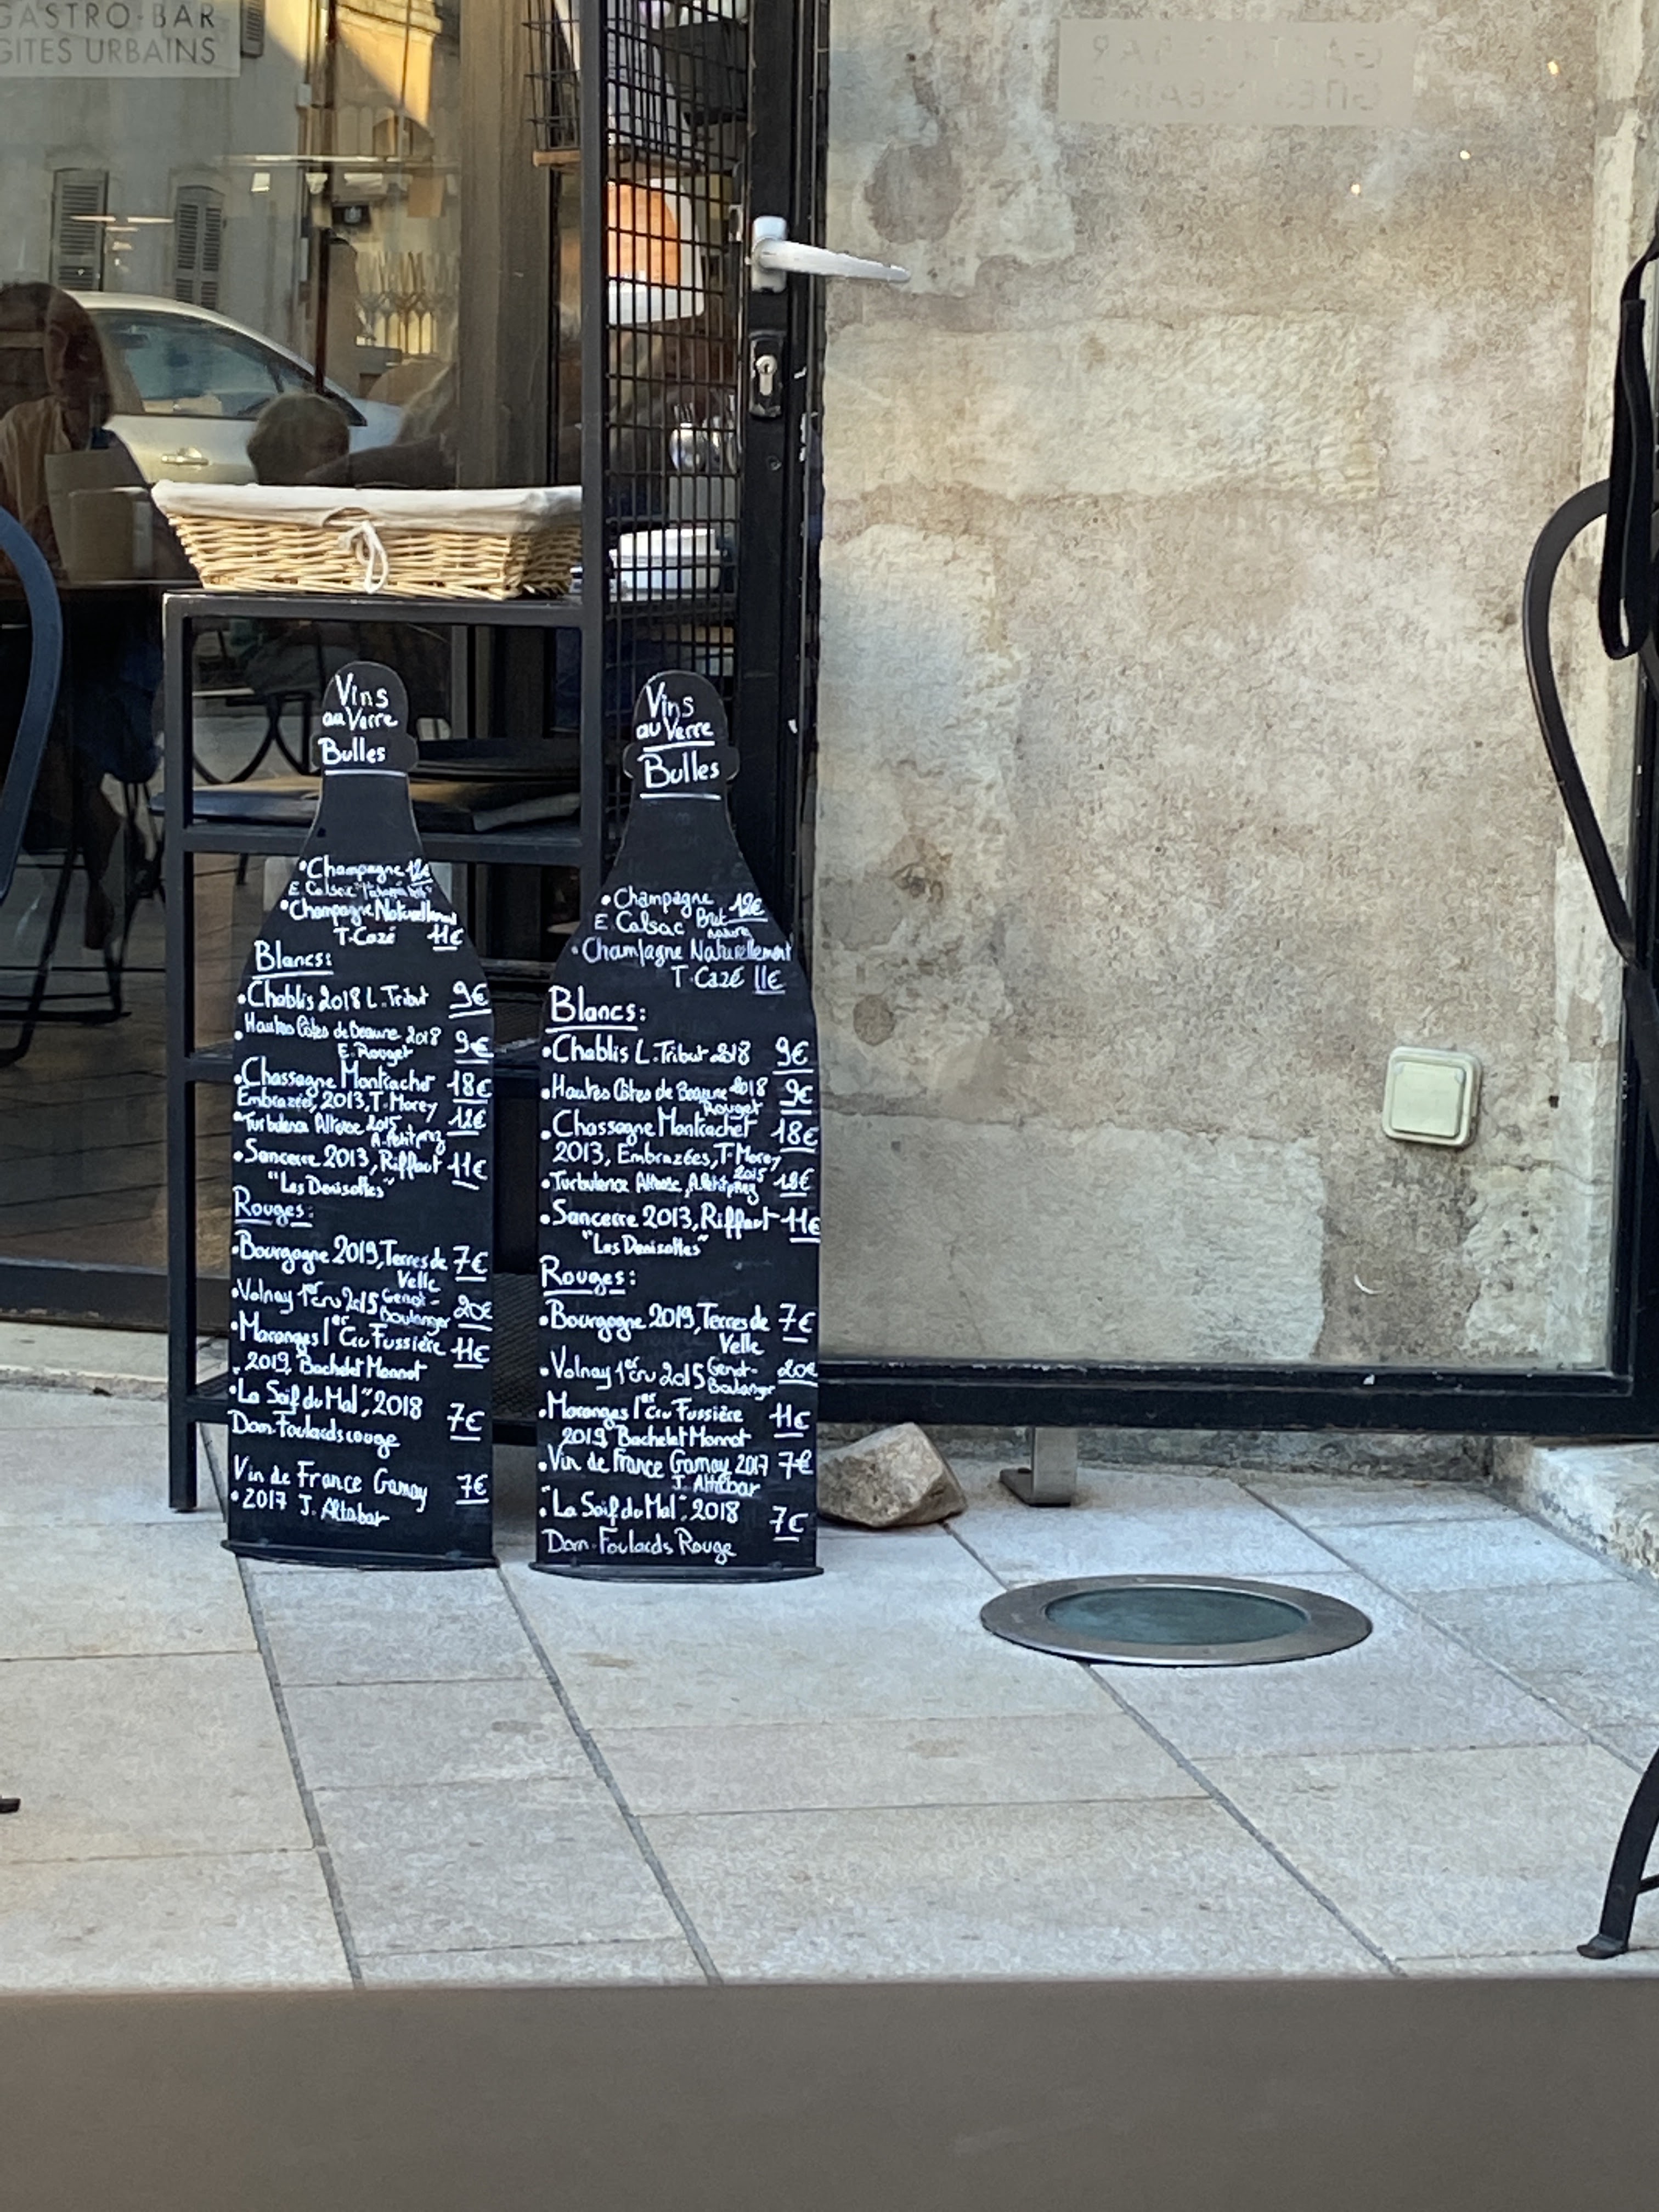 GASTRO-BAR
GITES URBAINS
Vins
au Verre
Bulles
• Champagne 12€
E. Calsac
• Champagne Naturellement
T. Cazé 11€
Blancs:
• Chablis 2018 L. Tribut 9€
• Hautes Côtes de Beaune 2018
E. Rouget 9€
• Chassagne Montrachet 18€
Embrazées, 2013, T. Morey
• Turbulence Altesse 2015 12€
A. Petit prez
• Sancerre 2013, Riffault 11€
"Les Denisottes"
Rouges:
• Bourgogne 2019, Terres de 7€
Velle
• Volnay 1er cru 2015 Genot- 20€
Boulanger
• Maranges 1er Cru Fussière 11€
2019, Bachelet Monnot
• "La Soif du Mal", 2018 7€
Dom. Foulards rouge
Vin de France Gamay 7€
• 2017 J. Altabar
Vins
au Verre
Bulles
• Champagne 12€
E. Calsac Brut
nature
• Champagne Naturellement
T. Cazé 11€
Blancs:
• Chablis L. Tribut 2018 9€
• Hautes Côtes de Beaune 2018 9€
Rouget
• Chassagne Montrachet 18€
2013, Embrazées, T. Morey
2015
• Turbulence Altesse, A. Petit prez 12€
• Sancerre 2013, Riffault 11€
"Les Denisottes"
Rouges:
• Bourgogne 2019, Terres de 7€
Velle
• Volnay 1er cru 2015 Genot- 20€
Boulanger
• Maranges 1er Cru Fussière 11€
2019, Bachelet Monnot
• Vin de France Gamay 2017 7€
J. Altabar
• "La Soif du Mal", 2018 7€
Dom. Foulards Rouge